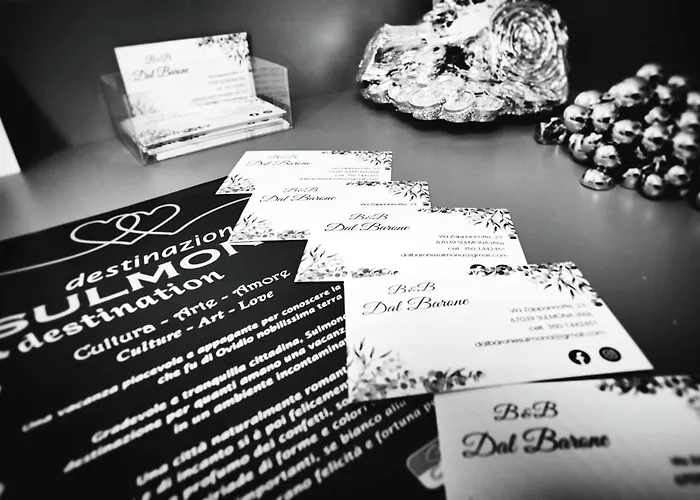 B&B
Dal Barone
B&B
Dal Barone
B&B
Dal Barone
B&B
Dal Barone
Via Zappannotte, 23
67039 SULMONA (AQ)
cell. 350.1442451
dalbaronesulmona@gmail.com
B&B
Dal Barone
Via Zappannotte, 23
67039 SULMONA (AQ)
cell. 350.1442451
dalbaronesulmona@gmail.com
B&B
Dal Barone
destinazion
SULMON
destination
Cultura - Arte - Amore
Culture - Art - Love
Una vacanza piacevole e appagante per conoscere la
che fu di Ovidio nobilissima terra
Gradevole e tranquilla cittadina, Sulmona
destinazione per quanti amano una vacanz
in un ambiente incontaminat
Una città naturalmente roman
e di incanto si è poi felicemen
profumo dei confetti, so
di forme e colori
importanti, se bianco
felicità e fortuna p